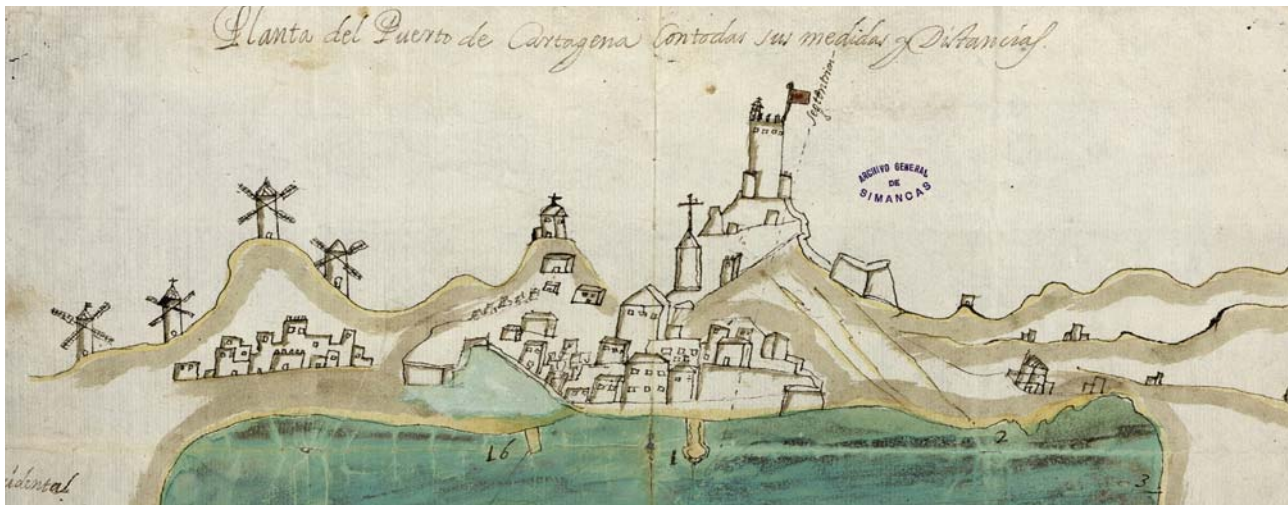 Planta del Puerto de Cartagena Con todas sus medidas y Distancias.
septentrion
ARCHIVO GENERAL
DE
SIMANCAS
16
1
2
3
idental